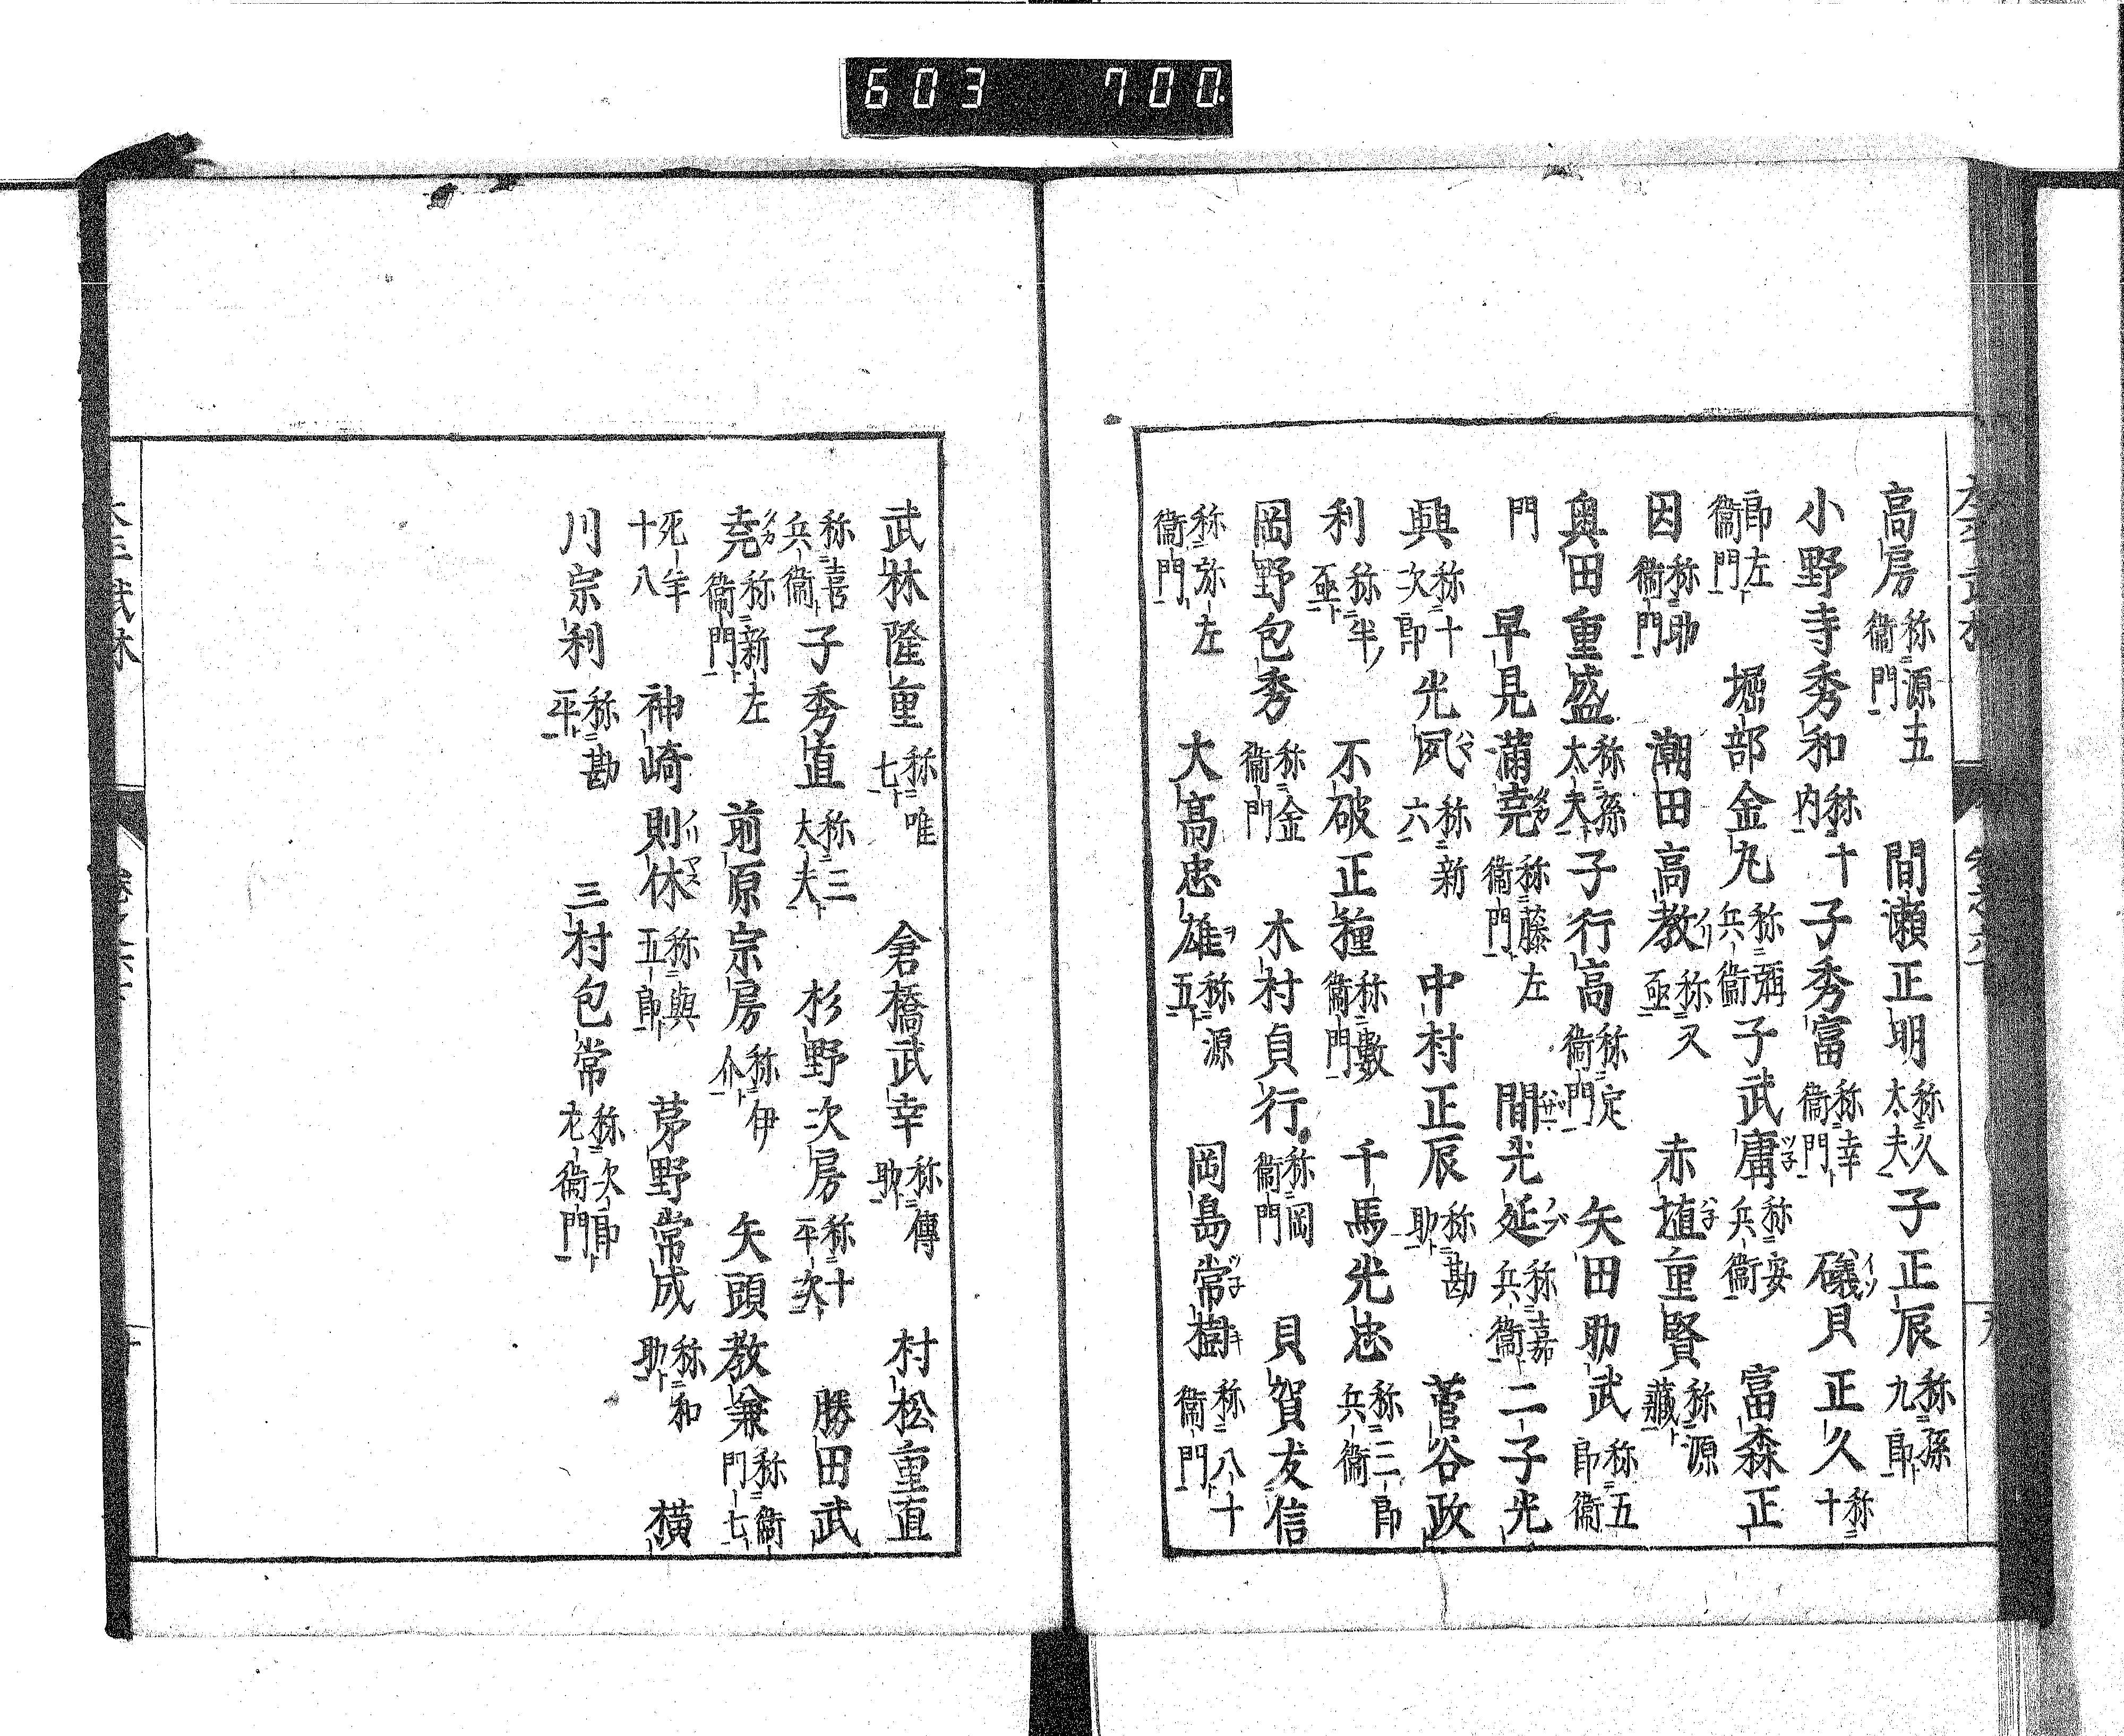 603 700
高房称源五衛門 間瀬正明称久太夫子正辰称孫九郎
小野寺秀和称十内子秀富称幸衛門 礒貝正久称十
郎左衛門 堀部金丸称彌兵衛子武庸称安兵衛 富森正
因称助衛門 潮田高教称又亟 赤埴重賢称源藏
奥田重盛称孫太夫子行高称定衛門 矢田助武称五郎衛
門 早見満尭称藤左衛門 間光延称嘉兵衛二子光
興称十次郎光夙称新六 中村正辰称勘助 菅谷政
利称半亟 不破正種称數衛門 千馬光忠称三郎兵衛
岡野包秀称金衛門 木村貞行称岡衛門 貝賀友信
称弥左衛門 大高忠雄称源五 岡島常樹称八十衛門
武林隆重称唯七 倉橋武幸称傳助 村松重直
称喜兵衛子秀直称三太夫 杉野次房称十平次 勝田武
尭称新左衛門 前原宗房称伊介 矢頭教兼称衛門七
死年十八 神崎則休称與五郎 茅野常成称和助 横
川宗利称勘平 三村包常称次郎左衛門